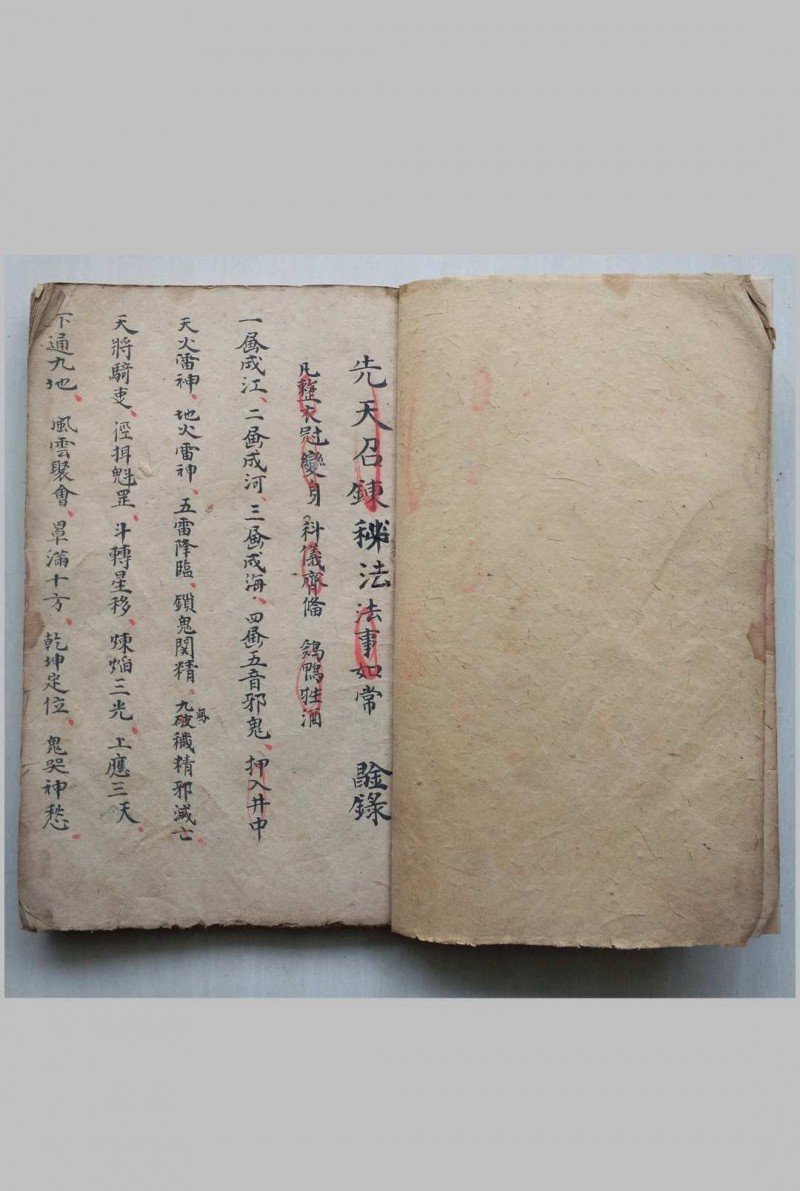 先天召鍊秘法法事如常 䤃錄
凡整衣冠變身 科儀齊俻 鷄鴨牲酒
一畫成江、二畫成河、三畫成海、四畫五音邪鬼、押入井中
天火雷神、地火雷神、五雷降臨、鎖鬼関精、九破穢精邪滅亡、
天將騎吏、徑拝魁罡、斗轉星移、煉焰三光、上應三天、
下通九地、風雲聚會、罩滿十方、乾坤定位、鬼哭神愁、